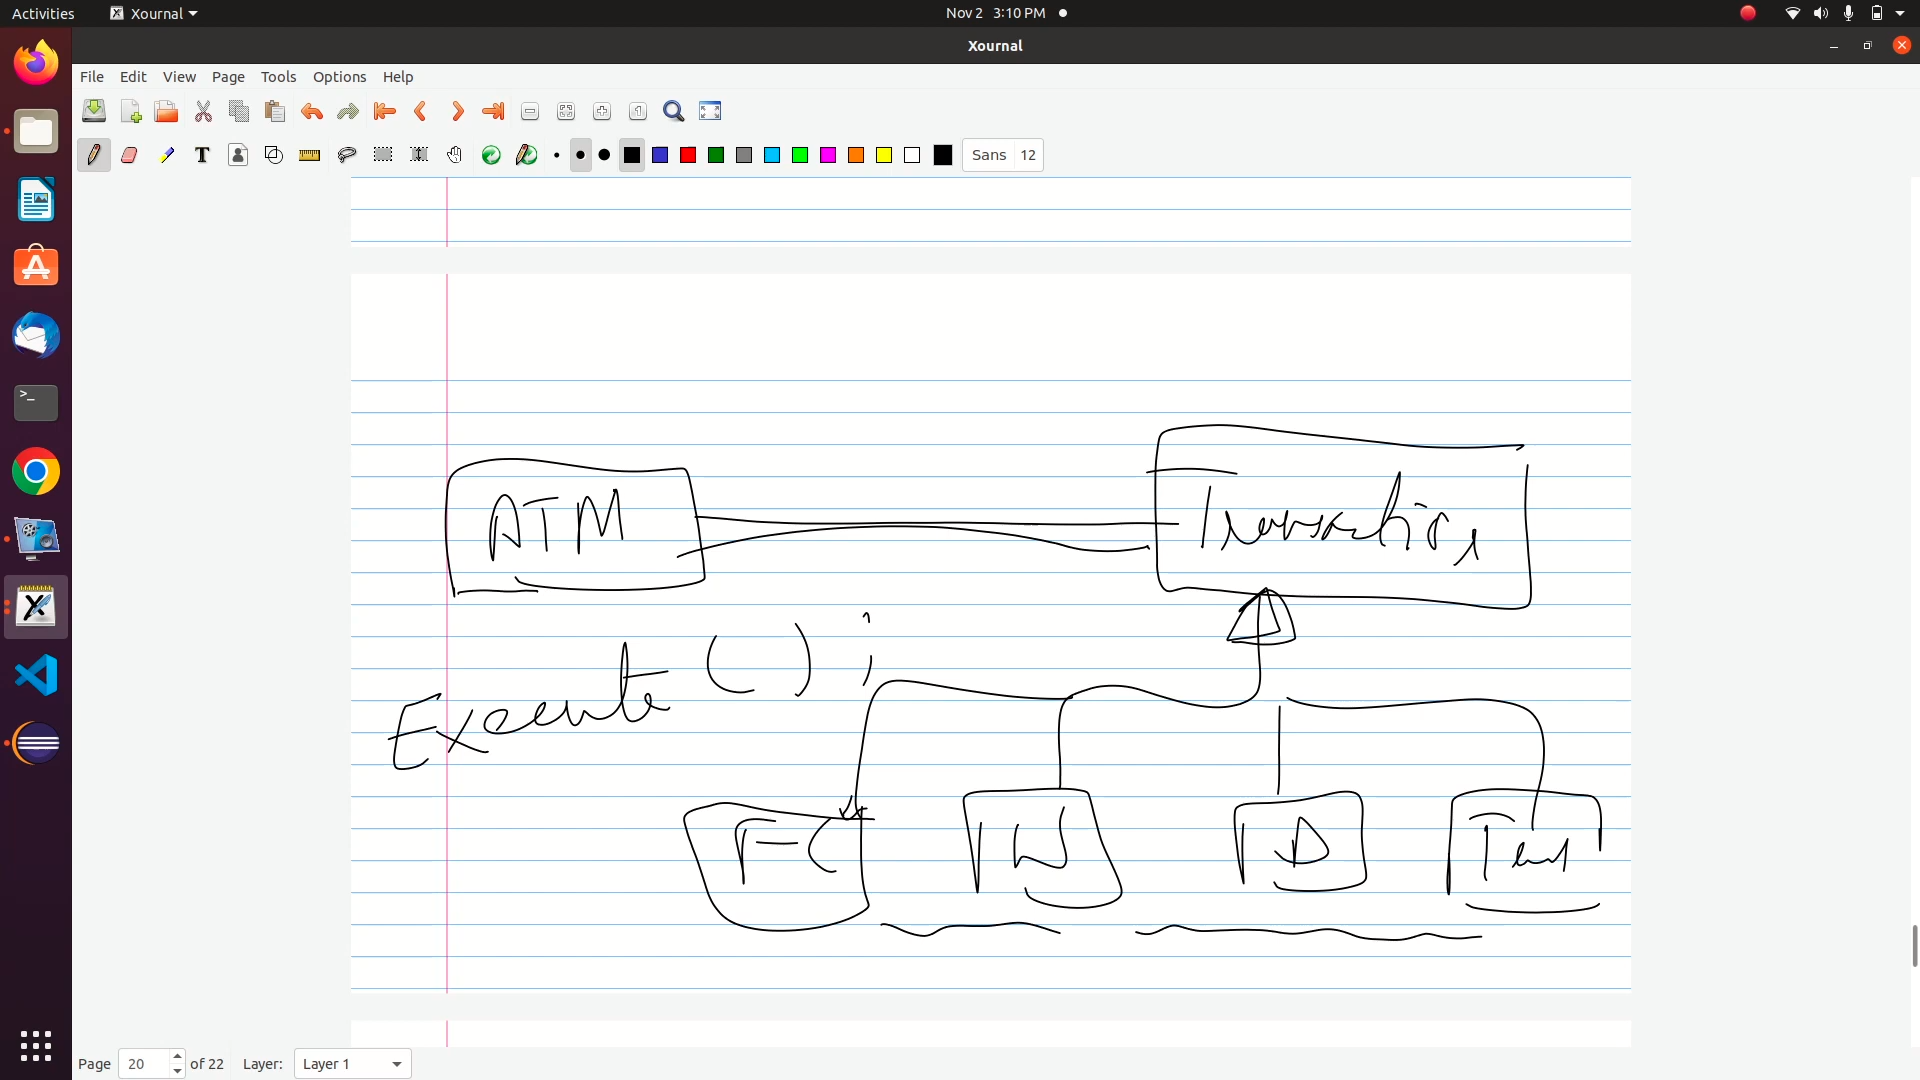 Activities Xournal Nov 2 3:10 PM
Xournal
File Edit View Page Tools Options Help
Sans 12
ATM
Transaction
Execute ( ) ;
FC W D Tran
Page 20 of 22 Layer: Layer 1